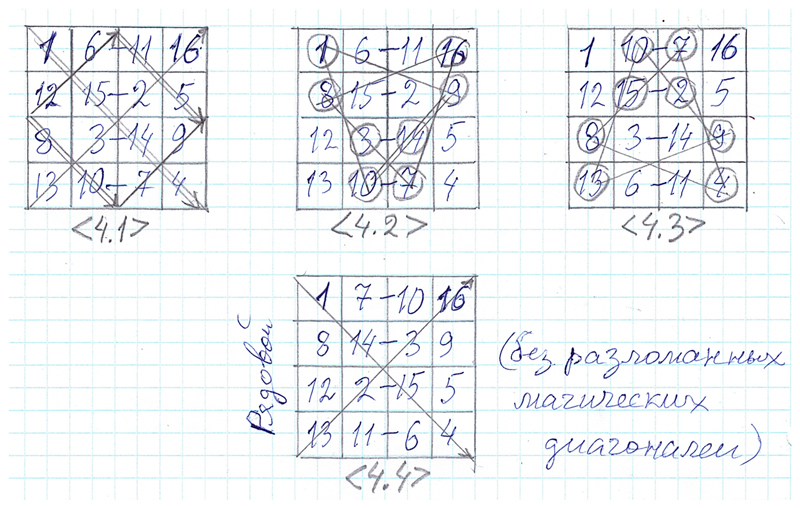 1 6–11 16
12 15–2 5
8 3–14 9
13 10–7 4
<4.1>
1 6–11 16
8 15–2 9
12 3–14 5
13 10–7 4
<4.2>
1 10–7 16
12 15–2 5
8 3–14 9
13 6–11 4
<4.3>
Рядовой
1 7–10 16
8 14–3 9
12 2–15 5
13 11–6 4
<4.4>
(без разломанных
магических
диагоналей)